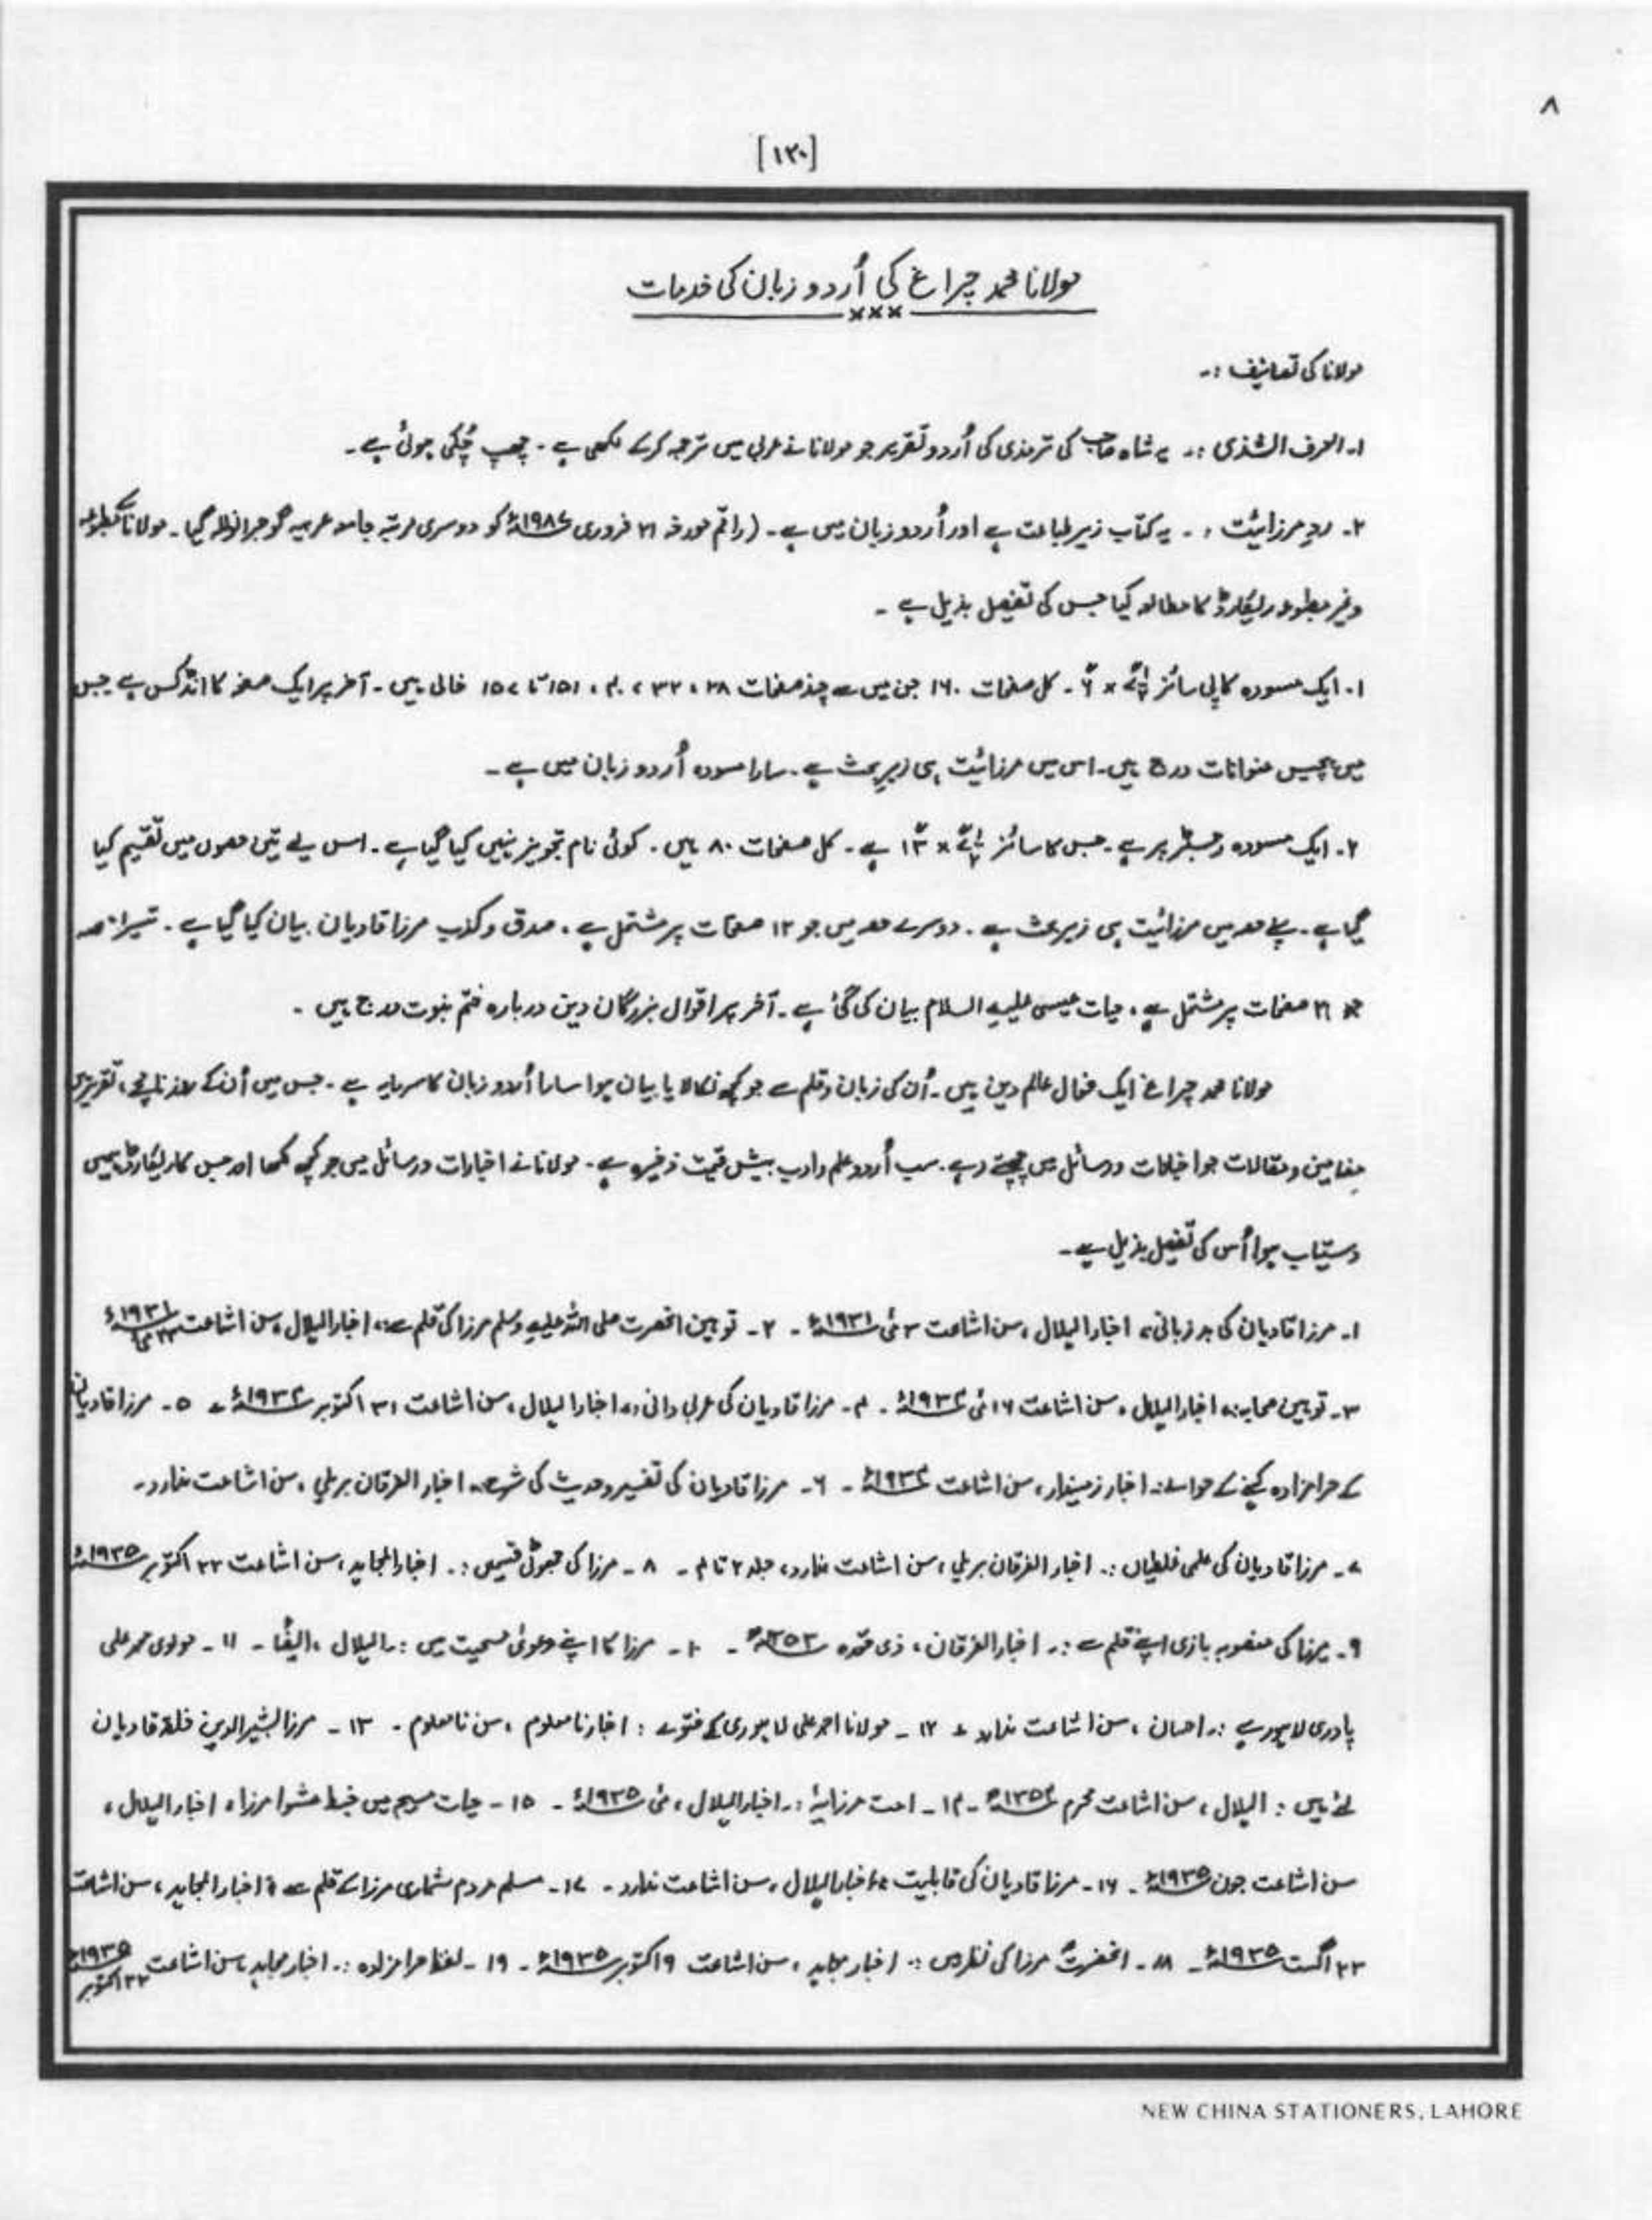 ۸
[۱۲۰]
مولانا محمد چراغ کی اُردو زبان کی خدمات
×××
مولانا کی تصانیف :۔
۱۔ العرف الشذی :۔ یہ شاہ صاحب کی ترمذی کی اُردو تقریر جو مولانا نے عربی میں ترجمہ کرکے لکھی ہے ۔ چھپ چُکی ہوئی ہے ۔
۲۔ ردِ مرزائیت :۔ یہ کتاب زیر طباعت ہے اور اُردو زبان میں ہے ۔ (راقم مورخہ ۲۱ فروری ۱۹۸۷ء کو دوسری مرتبہ جامعہ عربیہ گوجرانوالہ گیا ۔ مولانا کے مطبوعہ
وغیر مطبوعہ ریکارڈ کا مطالعہ کیا جس کی تفصیل بذیل ہے ۔
۱۔ ایک مسودہ کاپی سائز ۔ کل صفحات ۱۶۰ جن میں سے چند صفحات ۲۸ ، ۳۲ ، ۴۰ ، ۱۵۱ تا ۱۵۷ خالی ہیں ۔ آخر پر ایک صفحہ کا انڈکس ہے جس
میں پچیس عنوانات درج ہیں ۔ اس میں مرزائیت ہی زیرِ بحث ہے ۔ سارا مسودہ اُردو زبان میں ہے ۔
۲۔ ایک مسودہ رجسٹر پر ہے ۔ جس کا سائز ہے ۔ کل صفحات ۸۰ ہیں ۔ کوئی نام تجویز نہیں کیا گیا ہے ۔ اس لیے تین حصوں میں تقسیم کیا
گیا ہے ۔ پہلے حصہ میں مرزائیت ہی زیر بحث ہے ۔ دوسرے حصہ میں جو ۱۲ صفحات پر مشتمل ہے ، صدق و کذب مرزا قادیان بیان کیا گیا ہے ۔ تیسرا حصہ
جو ۲۱ صفحات پر مشتمل ہے ، حیات عیسیٰ علیہ السلام بیان کی گئی ہے ۔ آخر پر اقوال بزرگان دین دربارہ ختم نبوت درج ہیں ۔
مولانا محمد چراغ ایک فعال عالم دین ہیں ۔ اُن کی زبان و قلم سے جو کچھ نکالا یا بیان ہوا سارا اُردو زبان کا سرمایہ ہے ۔ جس میں اُن کے روزنامچے ، تقریریں
مضامین و مقالات جو اخبارات و رسائل میں چھپتے رہے ۔ سب اُردو علم و ادب بیش قیمت ذخیرہ ہے ۔ مولانا نے اخبارات و رسائل میں جو کچھ لکھا اور جس کا ریکارڈ ہمیں
دستیاب ہوا اُس کی تفصیل بذیل ہے ۔
۱۔ مرزا قادیان کی بد زبانی ، اخبار الہلال ، سن اشاعت مئی ۱۹۳۱ء ۔ ۲۔ توہین آنحضرت صلی اللہ علیہ وسلم مرزا کی قلم سے ، اخبار الہلال ، سن اشاعت ۲۳ مئی ۱۹۳۱ء
۳۔ توہین صحابہ ، اخبار الہلال ، سن اشاعت ۱۶ مئی ۱۹۳۲ء ۔ ۴۔ مرزا قادیان کی عربی دانی ، اخبار الہلال ، سن اشاعت ۳۱ اکتوبر ۱۹۳۲ء ۔ ۵۔ مرزا قادیان
کے حرامزادہ کہنے کے حوالے :۔ اخبار زمیندار ، سن اشاعت ۱۹۳۲ء ۔ ۶۔ مرزا قادیان کی تفسیر و حدیث کی ، اخبار الفرقان بریلی ، سن اشاعت ندارد ۔
۷۔ مرزا قادیان کی علمی غلطیاں :۔ اخبار الفرقان بریلی ، سن اشاعت ندارد ، جلد ۲ تا ۴ ۔ ۸۔ مرزا کی جھوٹی قسمیں :۔ اخبار المجاہد ، سن اشاعت ۲۳ اکتوبر ۱۹۳۵ء
۹۔ مرزا کی منصوبہ بازی اپنے قلم سے :۔ اخبار الفرقان ، ذی قعدہ ۱۳۵۳ھ ۔ ۱۰۔ مرزا کا اپنے دعوئ مسیحیت میں :۔ الہلال ، ایضًا ۔ ۱۱۔ مولوی محمد علی
پادری لاہور ہے :۔ احسان ، سن اشاعت ندارد ۔ ۱۲۔ مولانا احمد علی لاہوری کے فتوے : اخبار نامعلوم ، سن نامعلوم ۔ ۱۳۔ مرزا بشیر الدین خلفہ قادیان
لئے ہیں : الہلال ، سن اشاعت محرم ۱۳۵۴ھ ۔ ۱۴۔ امت مرزائیہ :۔ اخبار الہلال ، مئی ۱۹۳۵ء ۔ ۱۵۔ حیات مسیح میں خبط عشوا مرزا ، اخبار الہلال ،
سن اشاعت جون ۱۹۳۵ء ۔ ۱۶۔ مرزا قادیان کی قابلیت ، اخبار الہلال ، سن اشاعت ندارد ۔ ۱۷۔ مسلم مردم شماری مرزا کے قلم سے ، اخبار المجاہد ، سن اشاعت
۲۳ اگست ۱۹۳۵ء ۔ ۱۸۔ آنحضرتؐ مرزا کی نظر میں :۔ اخبار مجاہد ، سن اشاعت ۹ اکتوبر ۱۹۳۵ء ۔ ۱۹۔ لفظ حرامزادہ :۔ اخبار مجاہد ، سن اشاعت ۲۳ اکتوبر ۱۹۳۵ء
NEW CHINA STATIONERS, LAHORE